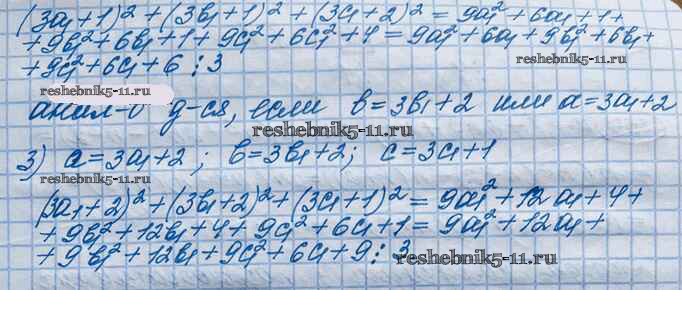 (3a₁+1)²+(3в₁+1)²+(3c₁+2)²=9a₁²+6a₁+1+
+9в₁²+6в₁+1+9c₁²+6c₁²+4=9a₁²+6a₁+9в₁²+6в₁+
reshebnik5-11.ru
+9c₁²+6c₁+6⋮3
reshebnik5-11.ru
анал-о д-ся, если в=3в₁+2 или a=3a₁+2
reshebnik5-11.ru
3) a=3a₁+2; в=3в₁+2; c=3c₁+1
reshebnik5-11.ru
(3a₁+2)²+(3в₁+2)²+(3c₁+1)²=9a₁²+12a₁+4+
+9в₁²+12в₁+4+9c₁²+6c₁+1=9a₁²+12a₁+
+9в₁²+12в₁+9c₁²+6c₁+9⋮3
reshebnik5-11.ru